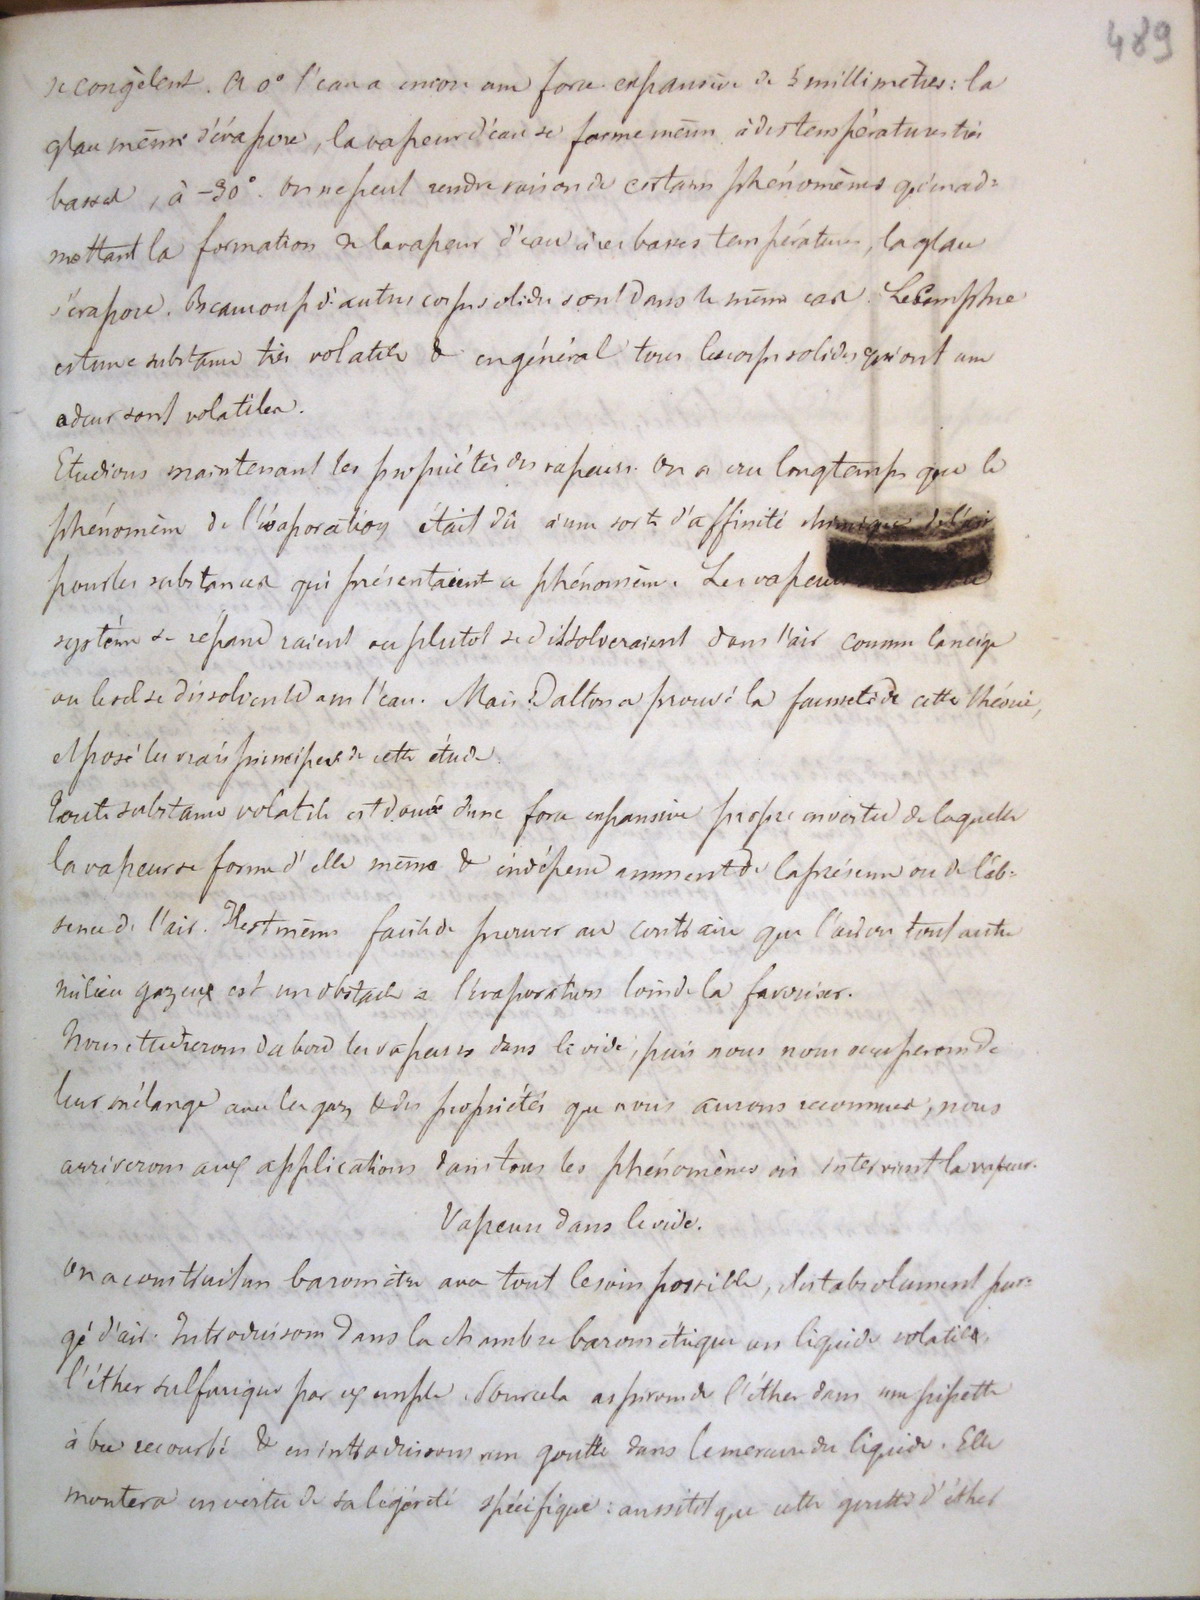 489
se congèlent. A 0° l'eau a encore une force expansive de 5 millimètres: la
glace même s'évapore, la vapeur d'eau se forme même à des températures très
basses, à -30°. On ne peut rendre raison de certains phénomènes qu'en ad=
mettant la formation de la vapeur d'eau à ces basses températures, la glace
s'évapore. Beaucoup d'autres corps solides sont dans le même cas. Le Camphre
est une substance très volatile & en général tous les corps solides qui ont une
odeur sont volatiles.
Etudions maintenant les propriétés des vapeurs. On a cru longtemps que le
phénomène de l'évaporation était dû à une sorte d'affinité chimique de l'air
pour les substances qui présentaient ce phénomène. Les vapeurs
système se répandraient ou plutot se dissolveraient dans l'air comme la neige
ou le sel se dissolvent dans l'eau. Mais Dalton a prouvé la fausseté de cette théorie,
et posé les vrais principes de cette étude.
Toute substance volatile est douée d'une force expansive propre en vertu de laquelle
la vapeur se forme d'elle même & indépendamment de la présence ou de l'ab=
sence de l'air. Il est même facile de prouver au contraire que l'air ou tout autre
milieu gazeux est un obstacle à l'évaporation loin de la favoriser.
Nous étudierons d'abord les vapeurs dans le vide, puis nous nous occuperons de
leur mélange avec les gaz, & des propriétés que nous aurons reconnues, nous
arriverons aux applications dans tous les phénomènes où intervient la vapeur.
Vapeurs dans le vide.
On a construit un baromètre avec tout le soin possible, il est absolument pur=
gé d'air. Introduisons dans la chambre barométrique un liquide volatile,
l'éther sulfurique par exemple. Pour cela aspirons de l'éther dans une pipette
à bec recourbé & en introduisons une goutte dans le mercure du liquide. Elle
montera en vertu de sa légèreté spécifique: aussitot que cette goutte d'éther